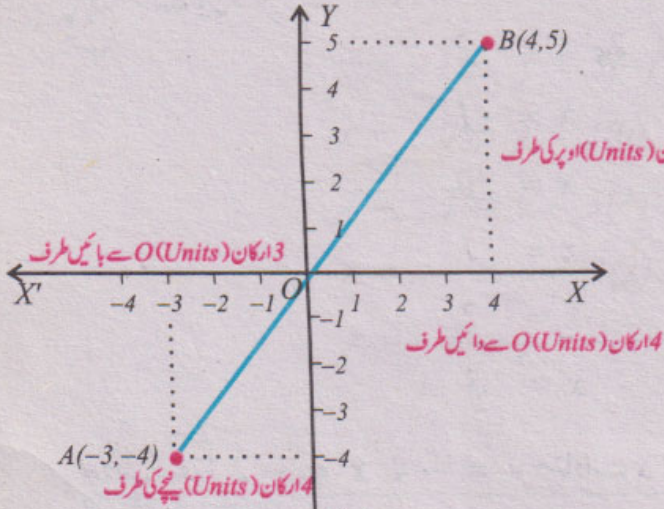 Y
5
B(4,5)
4
3
(Units)اوپر کی طرف
2
1
3ارکان(Units)O سے بائیں طرف
X' O X
-4 -3 -2 -1 1 2 3 4
-1
4ارکان(Units)O سے دائیں طرف
-2
-3
A(-3,-4)
-4
4ارکان(Units)نیچے کی طرف